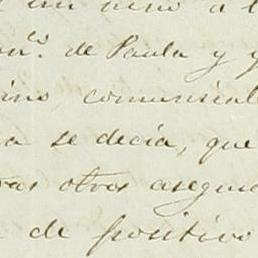 un niño a l
on.co de Paula y y
ino, comunicab
a se decia, que
ras otros asegur
de positivo